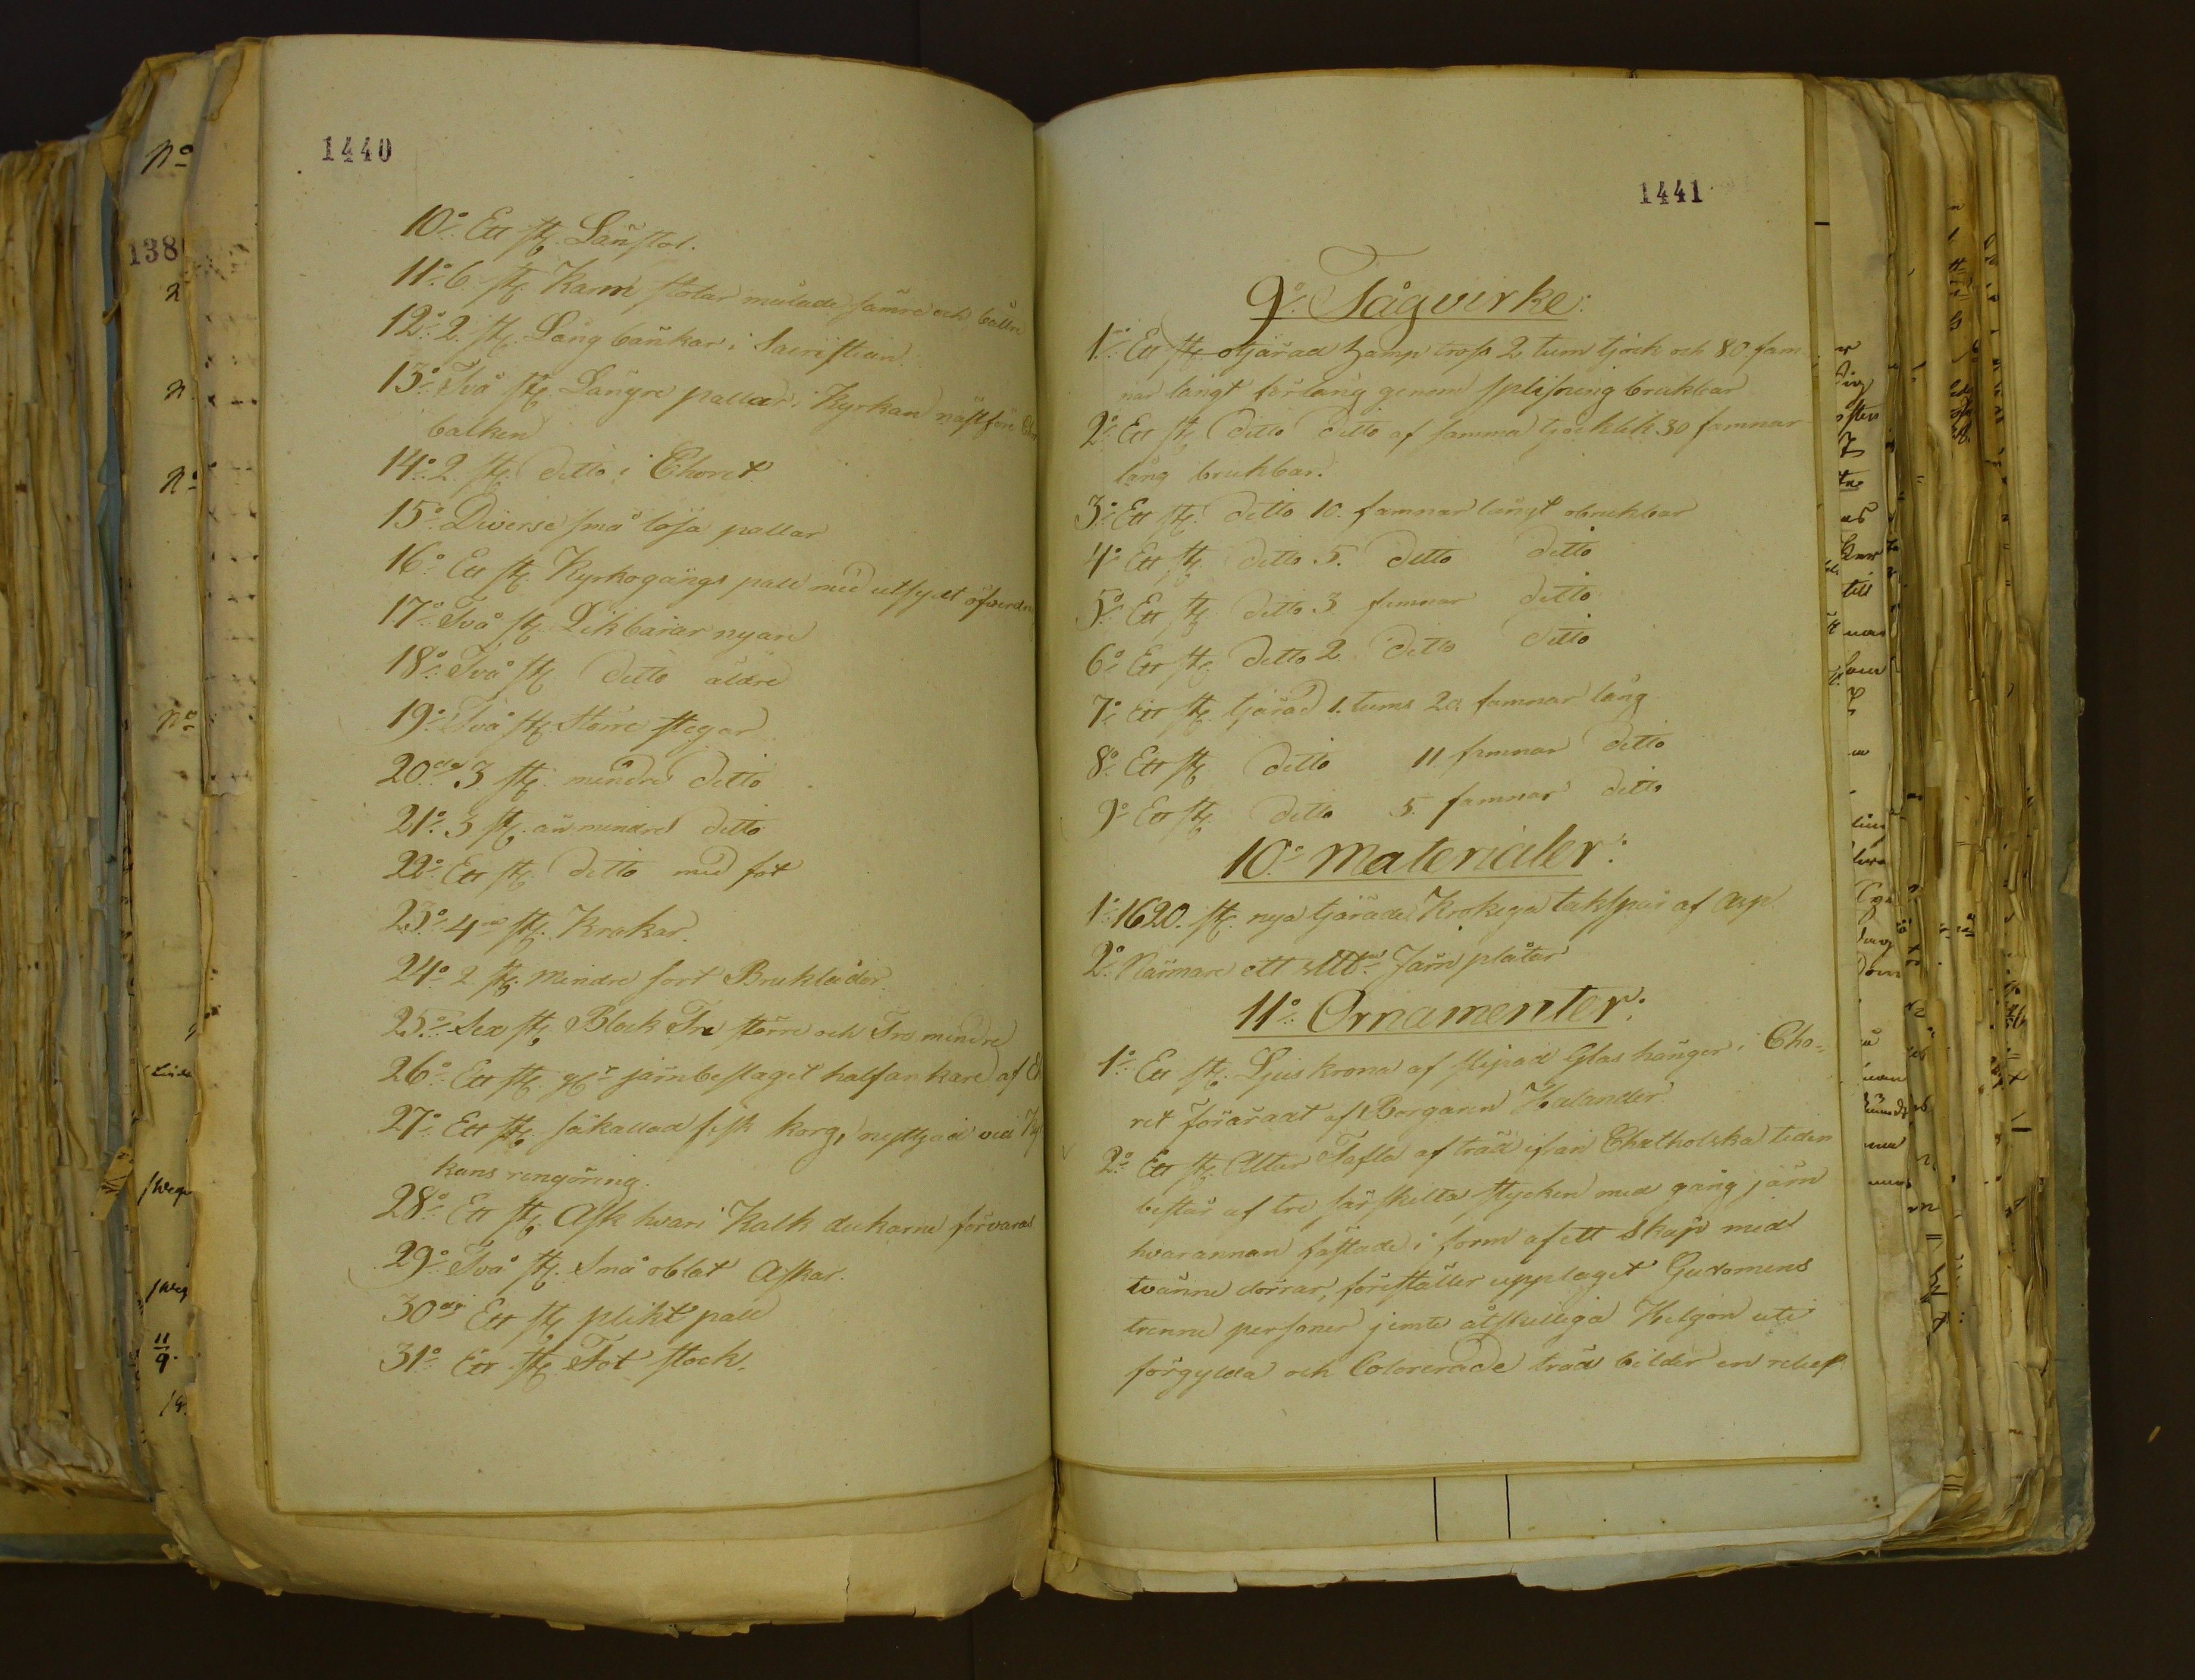 1440
10o Ett st. Länstol.
11o 6. st. Karm stolar målade sämre och bättre
12o 2. st. Lång bänkar i Sacristian
13o Två st. Längre pallar i Kyrkan näst före
balken
14o 2. st. ditto i Choret
15o Diverse små lösa pallar
16o Ett st. Kyrkogångs pall med utsydt
17o Två st. Likbårar nyare
18o Två st. ditto äldre
19o Två st. Större stegar
20de 3 st. mindre ditto
21o 3 st. än mindre ditto
22o Ett st. ditto med fot
23o 4ra st. Krakar.
24o 2. st. Mindre sort Bruklådor.
25o Sex st. Block Tre större och Tre mindre
26o Ett st. järnbeslaget halfankare af
27o Ett st. såkallad fisk korg, nyttjad vid
kans rengöring.
28o Ett st. Ask hvari Kalk dukarne förvaras
29o Två st. Små oblat Askar.
30de Ett st. plikt pall
31o Ett st. Fot stock.
1441
9o. Tågvirke:
1o Ett st. otjärad hamp tross 2 tum tjock och 80. fam-
nar långt förlängd genom splissning brukbar
2o Ett st. ditto ditto af samma tjocklek 30 famnar
lång brukbar.
3o Ett st. ditto 10. famnar långt obrukbar
4o Ett st. ditto 5. ditto ditto
5o Ett st. ditto 3 famnar ditto
6o Ett st. ditto 2 ditto ditto
7o Ett st. tjärad 1. tums 20. famnar lång
8o Ett st. ditto 11 famnar ditto
9o Ett st. ditto 5. famnar ditto
10o Materialer:
1o 1620. st. nya tjärade Krokiga takspån af Asp
2o Närmare ett Järn plåtar
11o Ornamenter:
1o Ett st. Ljus krona af slipad Glas hänger i Cho-
ret föräradt af Borgaren Helander
2o Ett st. Altar Tafla af träd ifrån Chatholska tiden
består af tre särskilta stycken med gång järn
hvarannan fästade i form af ett Skåp med
tvänne dörrar, föreställer upplaget Gudomens
trenne personer jemte åtskilliga Helgon uti
förgyllda och Colorerade träd bilder en relief